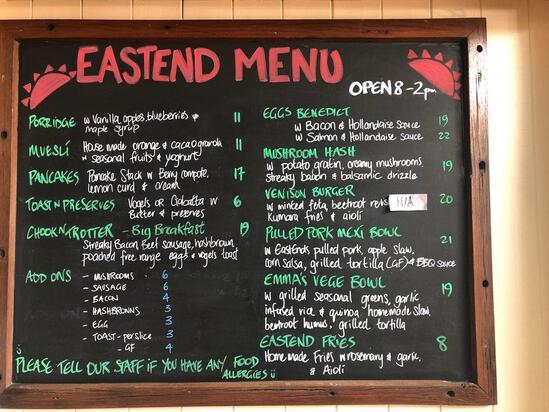 EASTEND MENU
OPEN 8-2pm
PORRIDGE w Vanilla, apples, blueberries & 11
maple syrup
MUESLI House made orange & cacao granola 11
w seasonal fruits & yoghurt
PANCAKES Pancake Stack w Berry compote, 17
lemon curd & cream
TOAST N PRESERVES Vogels or Ciabatta w 6
Butter & preserves
CHOOK N TROTTER - Big Breakfast 19
Streaky Bacon, Beef sausage, hashbrown,
poached free range eggs & vogels toast
ADD ONS - MUSHROOMS 6
- SAUSAGE 6
- BACON 4
- HASHBROWNS 3
- EGG 3
- TOAST - per slice 3
- GF 4
PLEASE TELL OUR STAFF IF YOU HAVE ANY FOOD
ALLERGIES
EGGS BENEDICT
w Bacon & Hollandaise sauce 19
w Salmon & Hollandaise sauce 22
MUSHROOM HASH
w potato gratin, creamy mushrooms 19
streaky bacon & balsamic drizzle
VENISON BURGER
w minted feta, beetroot N/A 20
Kumara fries & aioli
PULLED PORK MEXI BOWL
w Eastends pulled pork, apple slaw, 21
corn salsa, grilled tortilla (GF) & BBQ sauce
EMMA'S VEGE BOWL
w grilled seasonal greens, garlic 19
infused rice & quinoa, homemade slaw,
beetroot humus, grilled tortilla
EASTEND FRIES
Homemade Fries w rosemary & garlic, 8
& Aioli